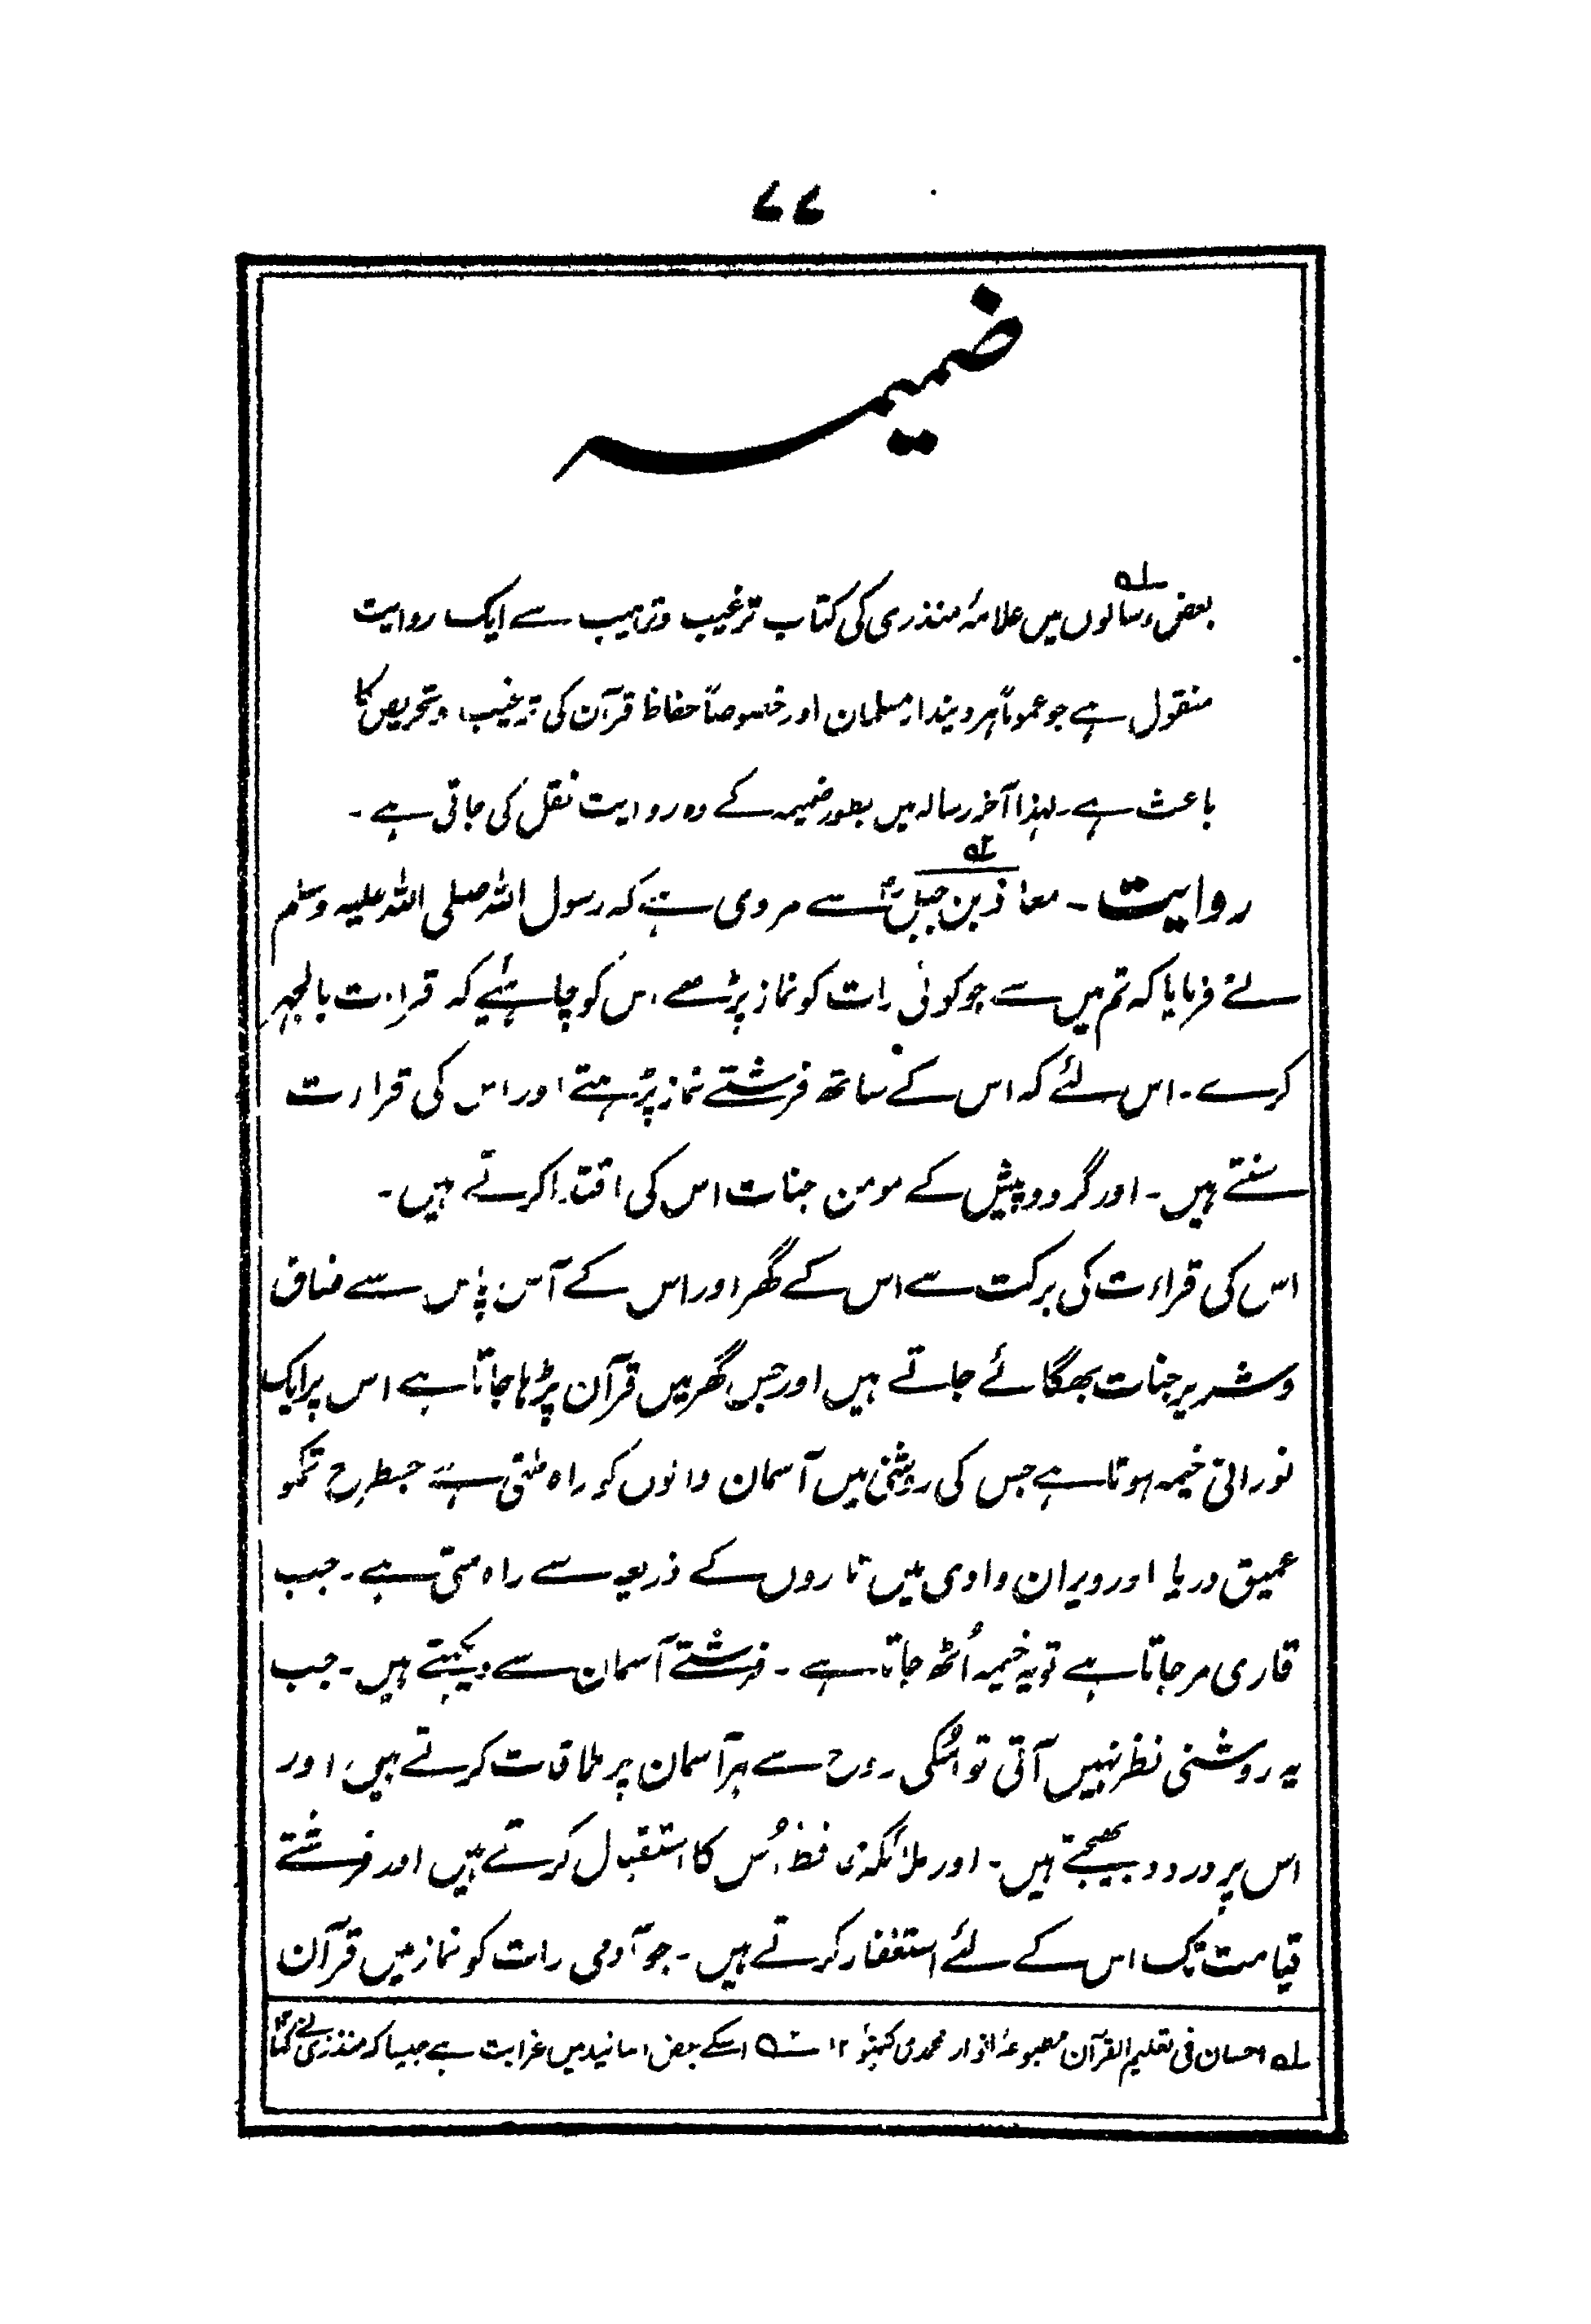 ۷۷
ضمیمہ
بعض رسالوں میں علامۂ منذری کی کتاب ترغیب و ترہیب سے ایک روایت
منقول ہے جو عموماً ہر دیندار مسلمان اور خصوصاً حفاظ قرآن کی ترغیب و تحریص کا
باعث ہے۔ لہذا آخر رسالہ میں بطور ضمیمہ کے وہ روایت نقل کی جاتی ہے۔
روایت۔ معاذ بن جبلؓ سے مروی ہے کہ رسول اللہ صلی اللہ علیہ وسلم
نے فرمایا کہ تم میں سے جو کوئی رات کو نماز پڑھے اس کو چاہئیے کہ قراءت بالجہر
کرے۔ اس لئے کہ اس کے ساتھ فرشتے نماز پڑہتے اور اس کی قراءت
سنتے ہیں۔ اور گرد و پیش کے مومن جنات اس کی اقتدا کرتے ہیں۔
اس کی قراءت کی برکت سے اس کے گھر اور اس کے آس پاس سے فساق
و شریر جنات بھگائے جاتے ہیں اور جس گھر میں قرآن پڑہا جاتا ہے اس پر ایک
نورانی خیمہ ہوتا ہے جس کی روشنی میں آسمان والوں کو راہ ملتی ہے جسطرح تمکو
عمیق دریا اور ویران وادی میں تاروں کے ذریعہ سے راہ ملتی ہے۔ جب
قاری مر جاتا ہے تو یہ خیمہ اُٹھ جاتا ہے۔ فرشتے آسمان سے دیکہتے ہیں۔ جب
یہ روشنی نظر نہیں آتی تو اُسکی روح سے ہر آسمان پر ملاقات کرتے ہیں، اور
اس پر درود بھیجتے ہیں۔ اور ملائکہ محافظ اُس کا استقبال کرتے ہیں اور فرشتے
قیامت تک اس کے لئے استغفار کرتے ہیں۔ جو آدمی رات کو نماز میں قرآن
؎۱ احسان فی تعلیم القرآن مطبوعۂ انوار محمدی لکہنؤ ۱۲ ؎۲ اسکے بعض اسانید میں غرابت ہے جیسا کہ منذری نے کتاب